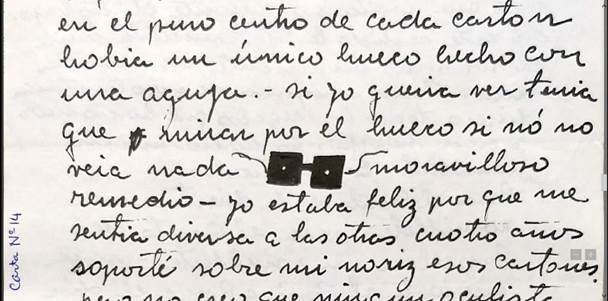 en el puro centro de cada carton
habia un único hueco hecho con
una aguja.- si yo queria ver tenia
que mirar por el hueco si nó no
veia nada maravilloso
remedio - yo estaba feliz por que me
sentia diversa a las otras cuatro años
soporté sobre mi nariz esos cartones.
pero no creo que ningun oculista
Carta Nº 14